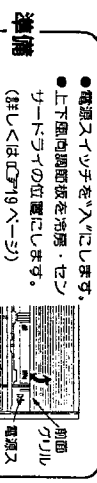 準備
●電源スイッチを"入"にします。
●上下風向調節板を冷房・セン
サードライの位置にします。
(詳しくは☞19ページ)
前面
グリル
電源ス